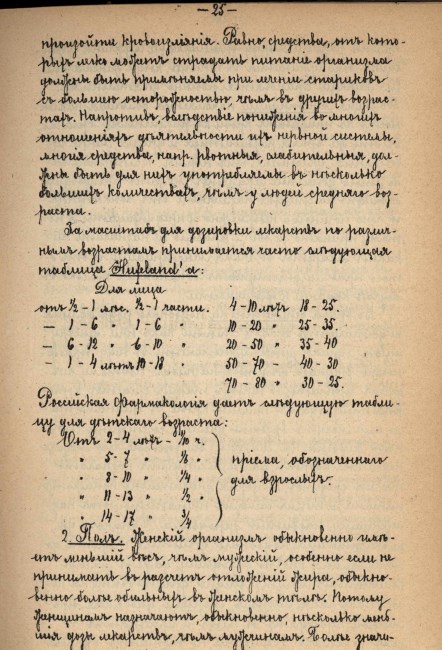 — 25 —
произойти кровоизлiянiя. Равно, средства, отъ кото-
рыхъ легко можетъ страдать питанiе организма
должны быть примѣняемы при леченiи стариковъ
съ большею осторожностью, чѣмъ въ другихъ возрас-
тахъ. Напротивъ, вслѣдствiе пониженiя во многихъ
отношенiяхъ дѣятельности ихъ нервной системы,
многiя средства, напр. рвотныя, слабительныя, дол-
жны быть для нихъ употребляемы въ нѣсколько
большихъ количествахъ, чѣмъ у людей средняго воз-
раста.
За масштабъ для дозировки лекарствъ по различ-
нымъ возрастамъ принимается часто слѣдующая
таблица Hufeland'a:
Для лица
отъ ½ – 1 мѣс. ½ – 1 части. 4 – 10 лѣтъ 18 – 25.
— 1 – 6 " 1 – 6 " 10 – 20 " 25 – 35.
— 6 – 12 " 6 – 10 " 20 – 50 " 35 – 40
— 1 – 4 лѣтъ 10 – 18 " 50 – 70 – 40 – 30
70 – 80 " 30 – 25.
Россiйская Фармакологiя даетъ слѣдующую табли-
цу для дѣтскаго возраста:
Отъ 2 – 4 лѣтъ – 1/10 ч.
" 5 – 7 " 1/6 "
" 8 – 10 " ¼ "
" 11 – 13 " ½ "
" 14 – 17 " ¾
прiема, обозначеннаго
для взрослыхъ.
2. Полъ. Женскiй организмъ обыкновенно имѣ-
етъ меньшiй вѣсъ, чѣмъ мужескiй, особенно если не
принимать въ разсчетъ отложенiй жира, обыкно-
венно болѣе обильныхъ въ женскомъ тѣлѣ. Потому
женщинамъ назначаютъ, обыкновенно, нѣсколько мень-
шiя дозы лекарствъ, чѣмъ мужчинамъ. Болѣе значи-